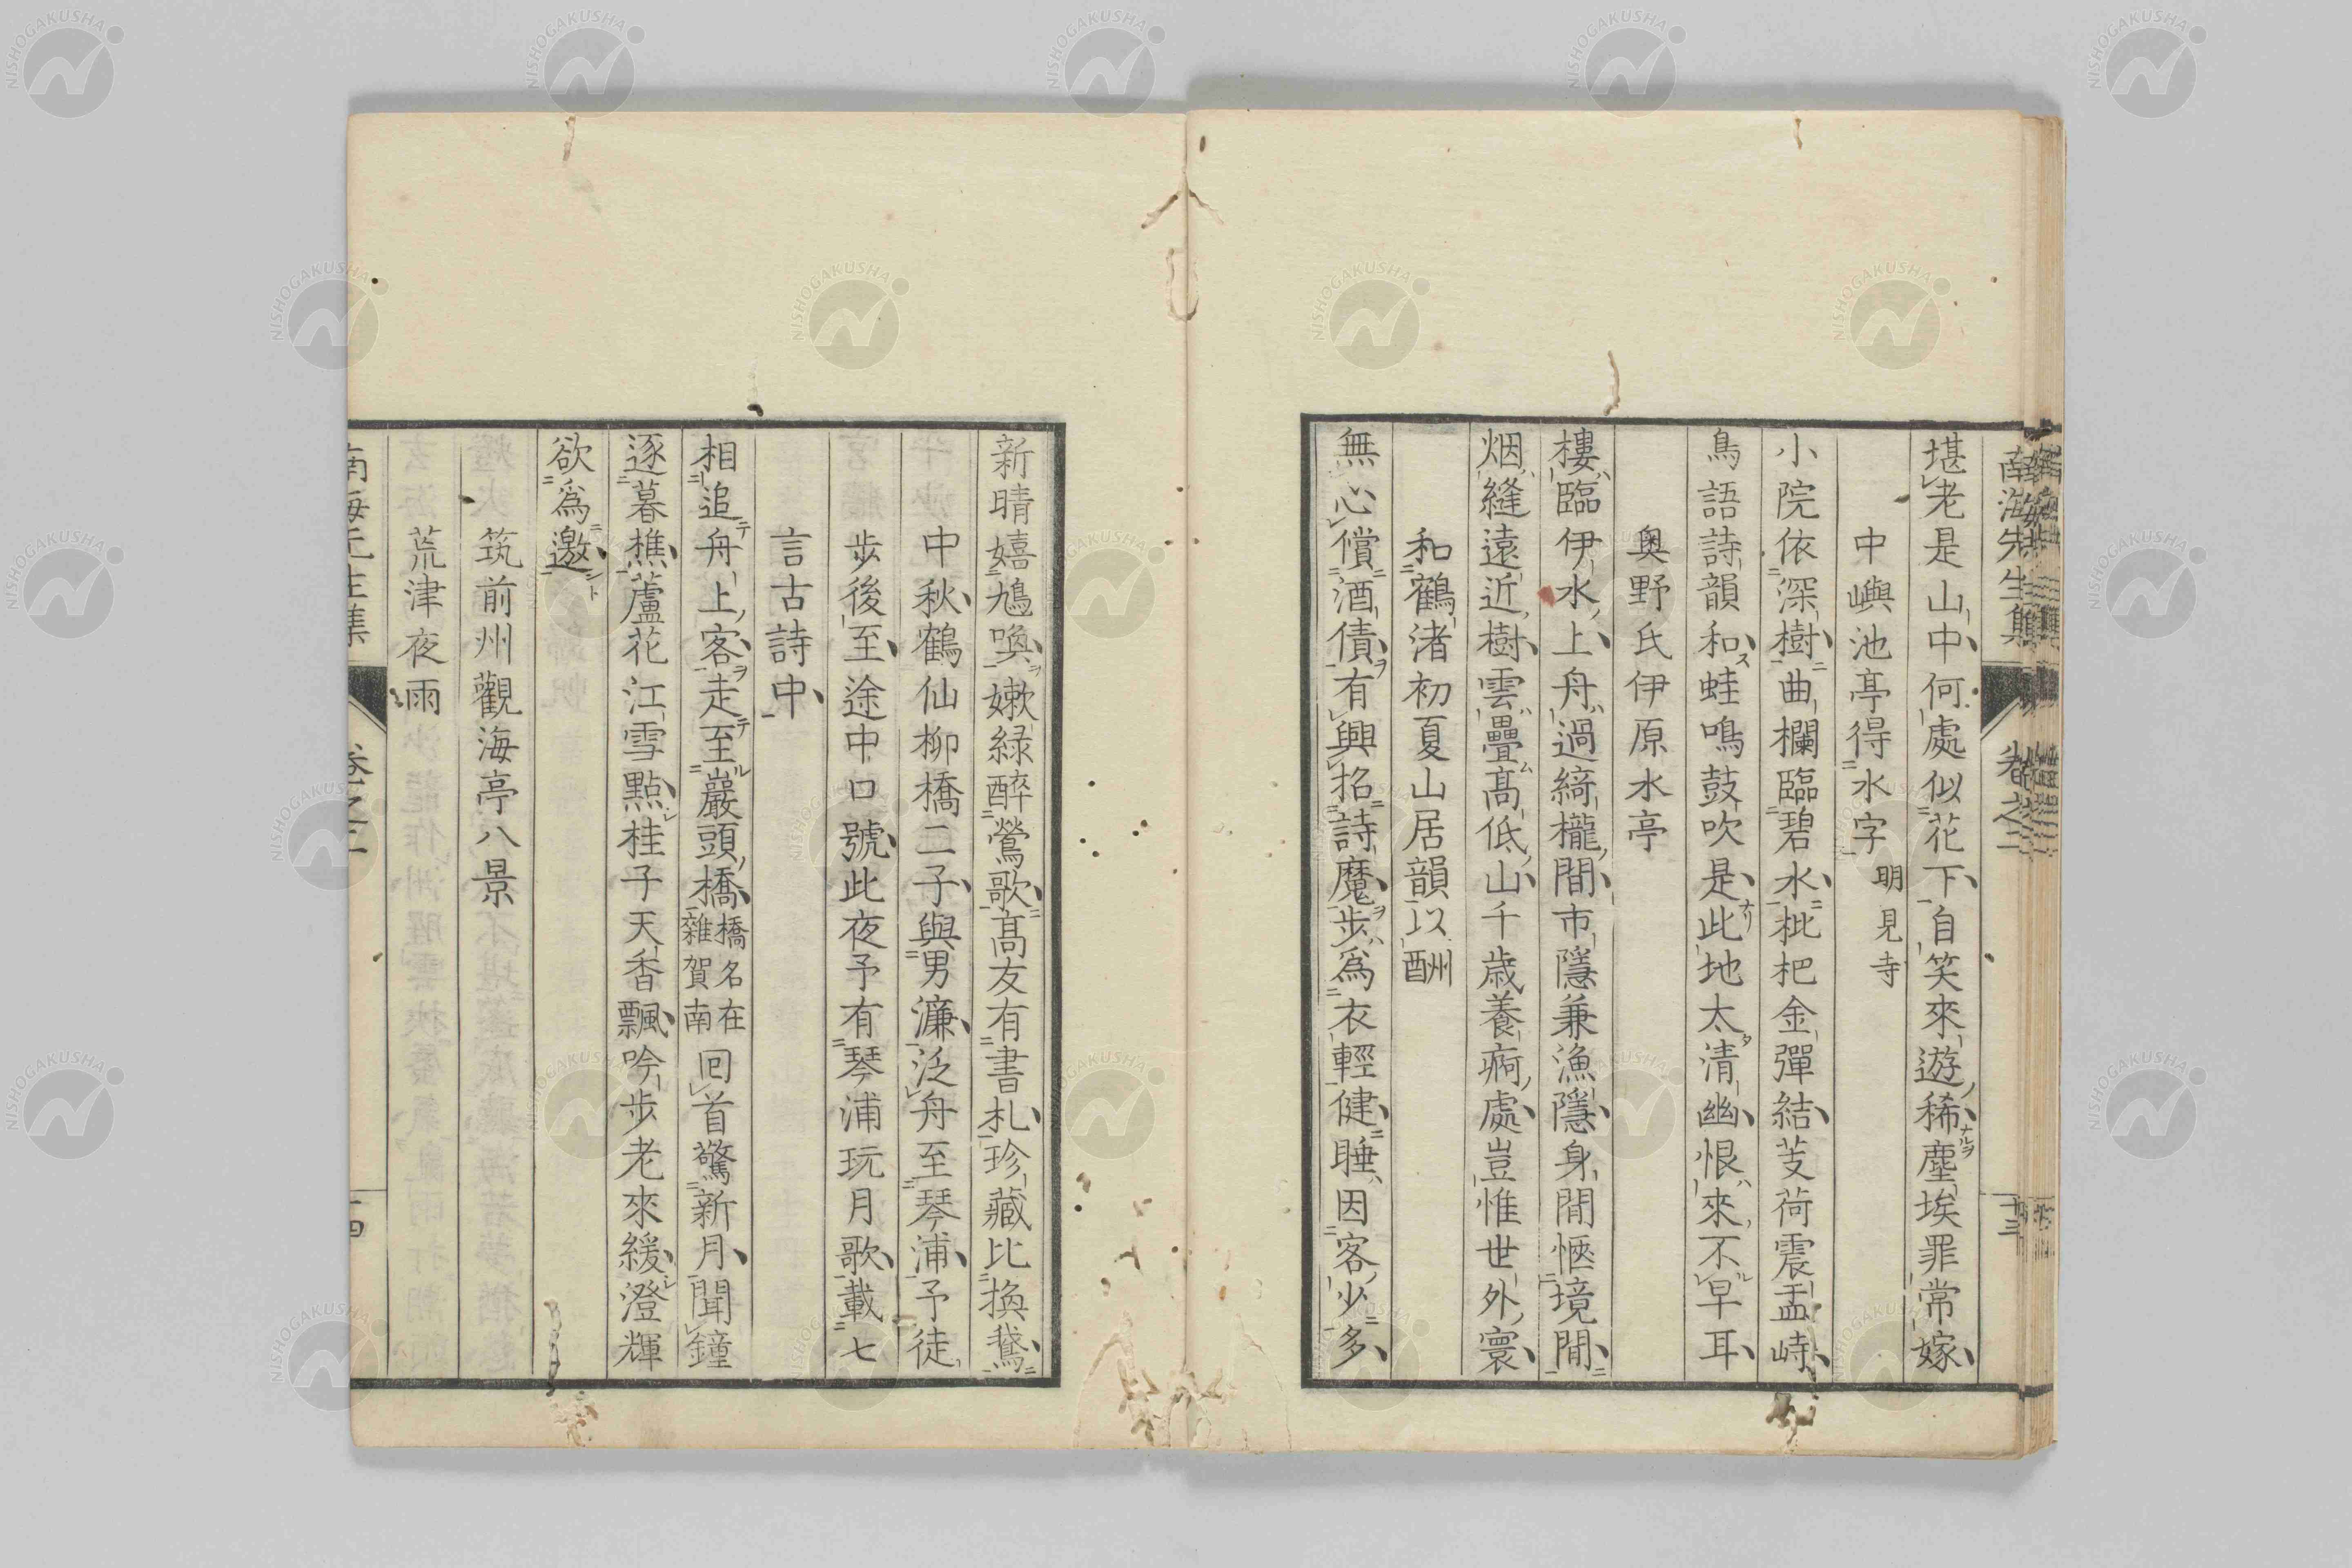 南海先生集 卷之二 十三
堪老是山中何處似花下自笑來遊稀塵埃罪常嫁
中嶼池亭得水字 明見寺
小院依深樹曲欄臨碧水枇杷金彈結芰荷震盂峙
鳥語詩韻和蛙鳴鼓吹是此地太清幽恨來不早耳
奥野氏伊原水亭
樓臨伊水上舟過綺櫳間市隱兼漁隱身閒愜境閒
烟縫遠近樹雲疊髙低山千歳養痾處豈惟世外寰
和鶴渚初夏山居韻以酬
無心償酒債有興招詩魔步為衣輕健睡因客少多
新晴嬉鳩喚嫰緑醉鶯歌髙友有書札珍藏比換鵞
中秋鶴仙柳橋二子與男濂泛舟至琴浦予徒
步後至途中口號此夜予有琴浦玩月歌載七
言古詩中
相追舟上客走至巖頭橋 橋名在雜賀南 回首驚新月聞鐘
逐暮樵蘆花江雪點桂子天香飄吟步老來緩澄輝
欲為邀
筑前州觀海亭八景
荒津夜雨
南海先生集 卷之二 十四
NISHOGAKUSHA